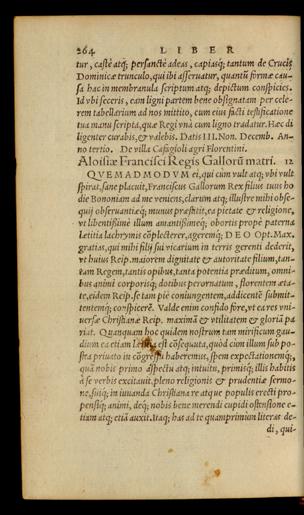 264 LIBER
tur, castè atq; persanctè adeas, capiasq; tantum de Crucis
Dominicæ trunculo, qui ibi asseruatur, quantũ formæ cau-
sa hac in membranula scriptum atq; depictum conspicies.
Id vbi feceris, eam ligni partem bene obsignatam per cele-
rem tabellarium ad nos mittito, cum eius facti testificatione
tua manu scripta, quæ Regi vnà cum ligno tradatur. Hæc di
ligenter curabis, & valebis. Datis III. Non. Decemb. An-
no tertio. De villa Cafagioli agri Florentini.
Aloisiæ Francisci Regis Gallorũ matri. 12
QVEMADMODVM ei, qui cùm vult atq; vbi vult
spirat, sane placuit, Franciscus Gallorum Rex filius tuus ho
die Bononiam ad me veniens, clarum atq; illustre mihi obse-
quij obseruantiæq; munus præstitit, ea pietate & religione,
vt libentißimè illum amantißimeq; obortis præ paterna
lætitia lachrymis cõplecterer, ageremq; DEO Opt. Max.
gratias, qui mihi filij sui vicarium in terris gerenti dederit,
vt huius Reip. maiorem dignitate & autoritate filium, tan-
tæam Regem, tantis opibus, tanta potentia præditum, omni-
bus animi corporisq; dotibus perornatum, florentem æta-
te, eidem Reip. se tam piè coniungentem, addicentè submit-
tentemq; conspicerẽ. Valde enim confido fore, vt ea res vni-
uersæ Christianæ Reip. maximã & vtilitatem & gloriã pa
riat. Quanquam hoc quidem nostrum tam mirificum gau-
dium ea etiam lætitia est cõsequuta, quòd cùm illum sub po-
sita priuato in cõgressu haberemus, spem expectationemq;,
quã nobis primo aspectu atq; intuitu, primisq; illis habitis
à se verbis excitauit pleno religionis & prudentiæ sermo-
ne, suisq; in iuuanda Christiana re atque populis erecti pro-
pensiq; animi, deq; nobis bene merendi cupidi ostensione e-
tiam atq; etiã auxit. Itaq; has ad te quamprimùm literas de-
di, qui-